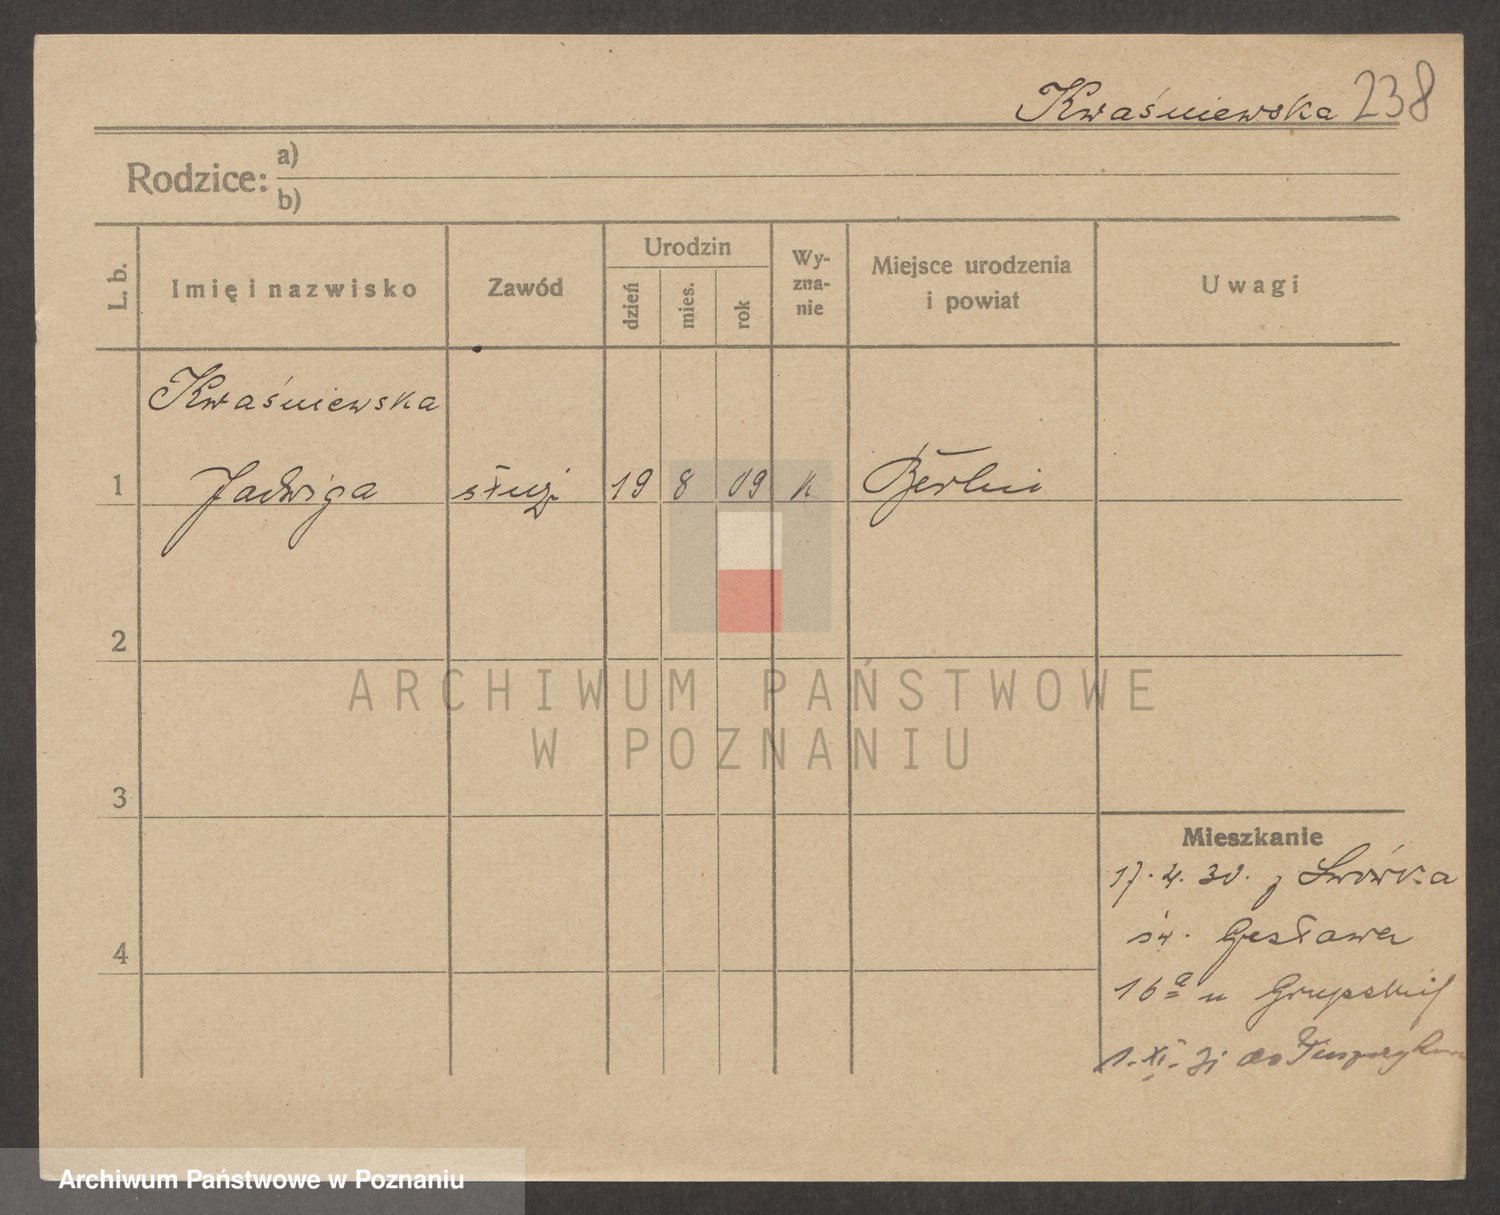 Kwaśniewska 238
Rodzice: a)
b)
L. b.
Imię i nazwisko
Zawód
Urodzin
dzień
mies.
rok
Wy-
zna-
nie
Miejsce urodzenia
i powiat
Uwagi
Kwaśniewska
1 Jadwiga służ. 19 8 09 k Berlin
2
3
4
Mieszkanie
17. 4. 30. z Lwówka
św. Czesława
16a u
1. XI. do
ARCHIWUM PAŃSTWOWE
W POZNANIU
Archiwum Państwowe w Poznaniu